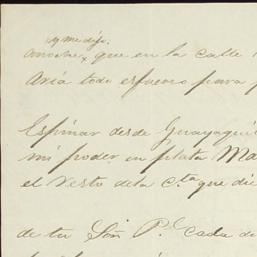 y me dijo.
anoche, que en la calle
Aría todo esfuerzo para
Espinar desde Guayaquil
mi poder en plata Ma
el resto de la C.ta que die
de tu Sõn P.l cada d